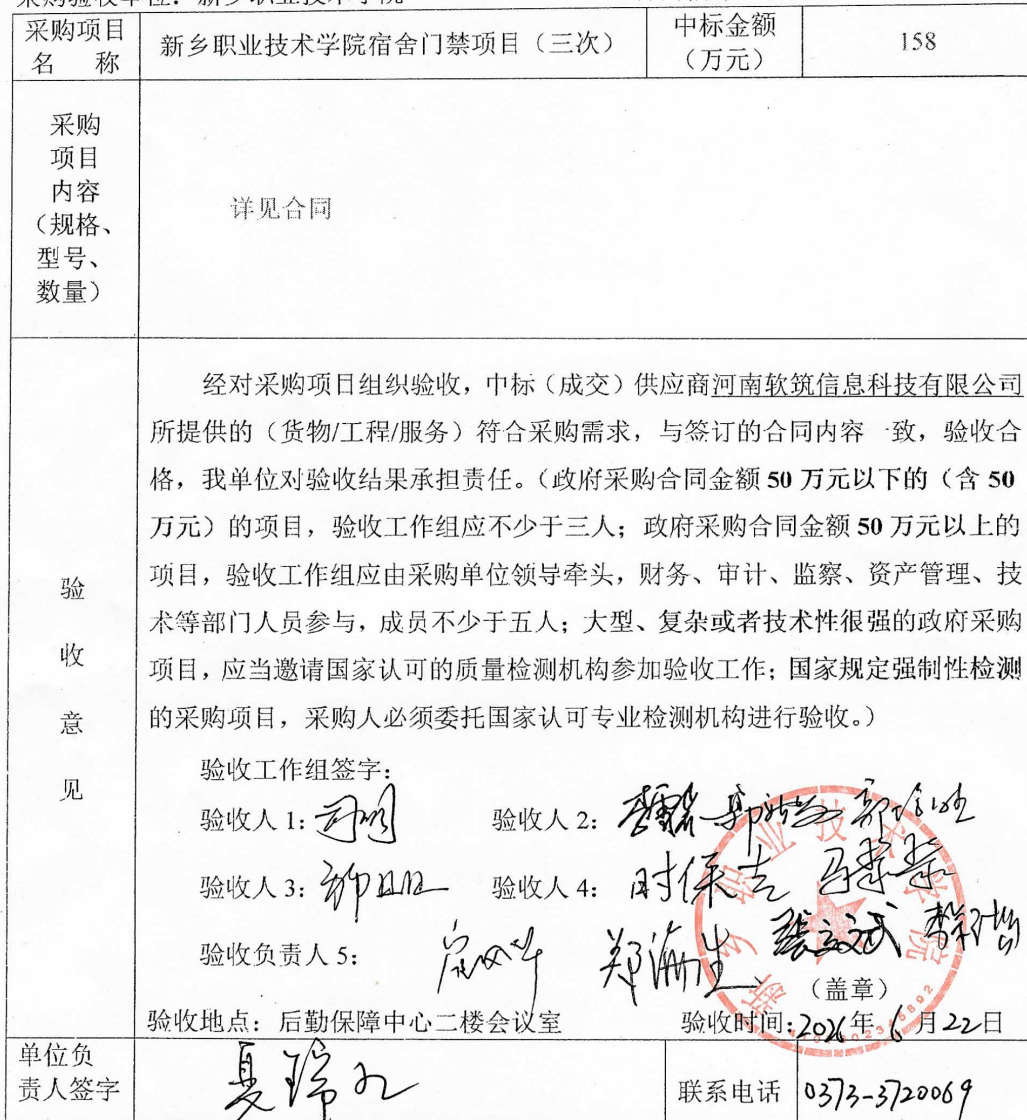 采购验收单位：新乡职业技术学院
采购项目名　称　新乡职业技术学院宿舍门禁项目（三次）　中标金额（万元）　158
采购
项目
内容
（规格、
型号、
数量）
详见合同
验收意见
经对采购项目组织验收，中标（成交）供应商河南软筑信息科技有限公司
所提供的（货物/工程/服务）符合采购需求，与签订的合同内容一致，验收合
格，我单位对验收结果承担责任。（政府采购合同金额 50 万元以下的（含 50
万元）的项目，验收工作组应不少于三人；政府采购合同金额 50 万元以上的
项目，验收工作组应由采购单位领导牵头，财务、审计、监察、资产管理、技
术等部门人员参与，成员不少于五人；大型、复杂或者技术性很强的政府采购
项目，应当邀请国家认可的质量检测机构参加验收工作；国家规定强制性检测
的采购项目，采购人必须委托国家认可专业检测机构进行验收。）
验收工作组签字：
验收人 1：　验收人 2：
验收人 3：　验收人 4：时保吉
验收负责人 5：　郑海生
新乡职业技术学院
（盖章）
验收地点：后勤保障中心二楼会议室　验收时间：2026年 6 月22日
单位负
责人签字　联系电话　0373-3720069